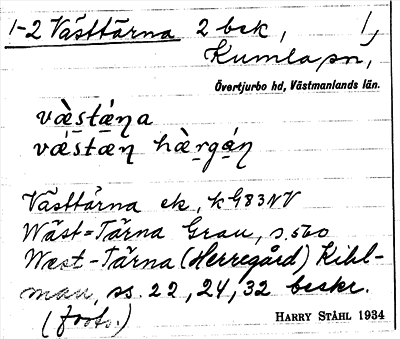 1-2 Västtärna 2 bsk, 1,
Kumla sn,
Övertjurbo hd, Västmanlands län.
væ̀stǽŋa
vǽstæŋ hæ̀rgáŋ
Västtärna ek, k G83NV
Wäst=Tärna Grau, s. 560
West-Tärna (Herregård) Kihl-
man, ss. 22, 24, 32 beskr.
(forts.)
HARRY STÅHL 1934